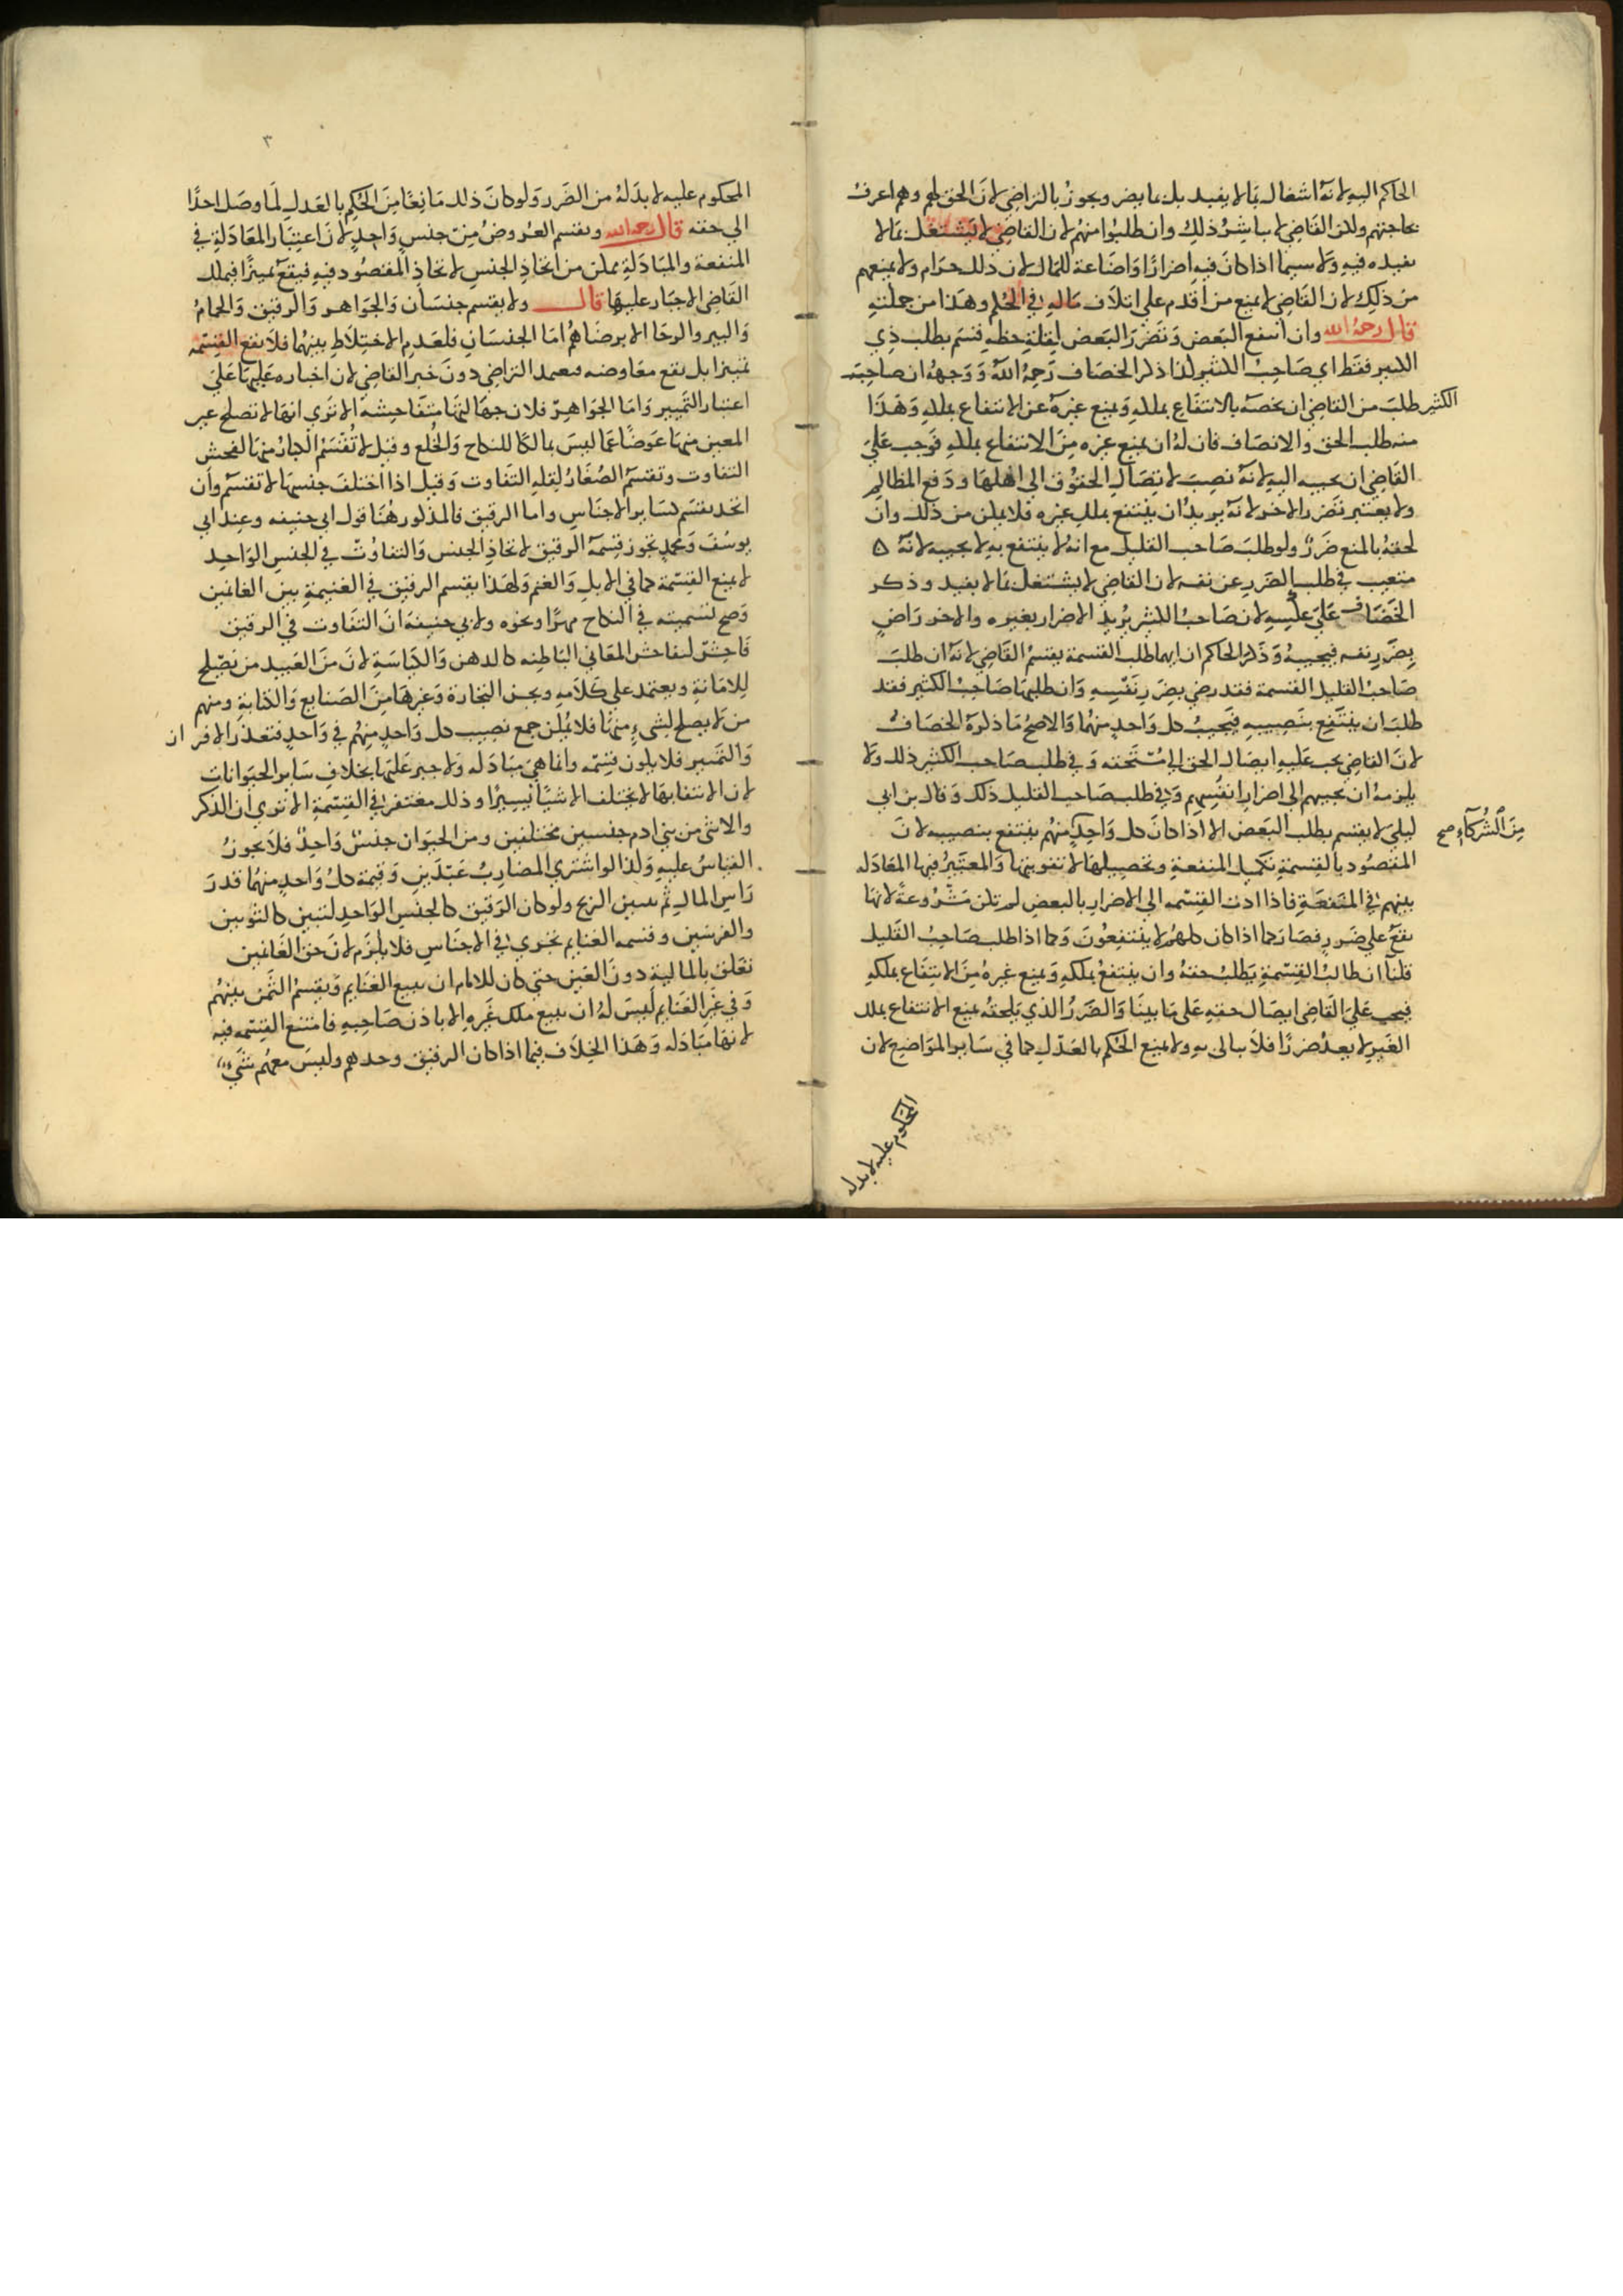 الحاكم اليه لانه اشتغال بما لا يفيد بل بما يضر ويجوز بالتراضي لان الحق لهم وهم اعرف
بحاجتهم ولكن القاضي لا يباشر ذلك وان طلبوا منهم لان القاضي لا يشتغل بما لا
يفيده فيه ولا سيما اذا كان فيه اضرارا واضاعة للمال لان ذلك حرام ولا يمنعهم
من ذلك لان القاضي لا يمنع من اقدم على اتلاف ماله في الحكم وهذا من جملته
قال رحمه الله وان انتفع البعض وتضرر البعض لقلة حظه قسم بطلب ذي
الكثير فقط اي صاحب الكثير كذا ذكر الخصاف رحمه الله ووجهه ان صاحب
الكثير طلب من القاضي ان يخصه بالانتفاع بملكه ويمنع غيره عن الانتفاع بملكه وهذا
منه طلب الحق والانصاف فان له ان يمنع غيره من الانتفاع بملكه فوجب على
القاضي ان يجيبه اليه لانه نصب لايصال الحقوق الى اهلها ودفع المظالم
ولا يعتبر تضرر الاخر لانه يريد ان ينتفع بملك غيره فلا يمكن من ذلك وان
لحقه بالمنع ضرر ولو طلب صاحب القليل مع انه لا ينتفع به لا يجيبه لانه ه
متعيب في طلب الضرر عن نفسه لان القاضي لا يشتغل بما لا يفيد وذكر
الخصاف على عكسه لان صاحب الكثير يريد الاضرار بغيره والاخر راض
بضرر نفسه فيجيبه وذكر الحاكم ان ايهما طلب القسمة يقسم القاضي لانه ان طلب
صاحب القليل القسمة فقد رضي بضرر نفسه وان طلبها صاحب الكثير فقد
طلب ان ينتفع بنصيبه فيجيب كل واحد منهما والاصح ما ذكره الخصاف
لان القاضي يجب عليه ايصال الحق الى مستحقه وفي طلب صاحب الكثير ذلك ولا
يلزمه ان يجيبهم الى اضرار انفسهم وفي طلب صاحب القليل ذلك وقال بن ابي
ليلى لا يقسم بطلب البعض الا اذا كان كل واحد منهم ينتفع بنصيبه لان
من الشركاء صح
المقصود بالقسمة تكميل المنفعة وتحصيلها لا تفويتها والمعتبر فيها المعادله
بينهم في المنفعة فاذا ادت القسمه الى الاضرار بالبعض لم تكن مشروعة لانها
تقع على ضرر فصار كما اذا كان كلهم لا ينتفعون وكما اذا طلب صاحب القليل
قلنا ان طالب القسمة يطلب حقه وان ينتفع بملكه ويمنع غيره من الانتفاع بملكه
فيجب على القاضي ايصال حقه على ما بينا والضرر الذي يلحقه بمنع الانتفاع بملك
الغير لا يعد ضررا فلا يبالى به ولا يمنع الحكم بالعدل كما في ساير المواضع لان
المحكوم عليه لا بد له
٣
المحكوم عليه لا بد له من الضرر ولو كان ذلك مانعا من الحكم بالعدل لما وصل احدا
الى حقه قال رحمه الله ويقسم العروض من جنس واحد لان اعتبار المعادلة في
المنفعة والمبادلة ممكن من اتحاد الجنس لاتحاد المقصود فيه فيقع تمييزا فيملك
القاضي الاجبار عليها قال ولا يقسم جنسان والجواهر والرقيق والحمام
والبير والرحا الا برضاهم اما الجنسان فلعدم الاختلاط بينهما فلا تقع القسمه
تمييزا بل تقع معاوضه فيعتمد التراضي دون جبر القاضي لان اجباره عليها على
اعتبار التمييز واما الجواهر فلان جهالتها متفاحشة الا ترى انها لا تصلح غير
المعين منها عوضا عما ليس بمال كالنكاح والخلع وقيل لا تقسم الكبار منها لفحش
التفاوت وتقسم الصغار لقله التفاوت وقيل اذا اختلف جنسها لا تقسم وان
اتحد يقسم كساير الاجناس واما الرقيق فالمذكور هنا قول ابي حنيفه وعند ابي
يوسف ومحمد تجوز قسمة الرقيق لاتحاد الجنس والتفاوت في الجنس الواحد
لا يمنع القسمة كما في الابل والغنم ولهذا يقسم الرقيق في الغنيمة بين الغانمين
وصح تسميته في النكاح مهرا ونحوه ولابي حنيفة ان التفاوت في الرقيق
فاحش لتفاحش المعاني الباطنه كالدهن والكياسة لان من العبيد من يصلح
للامانة ويعتمد على كلامه ويحسن التجارة وغيرها من الصنايع والكتابة ومنهم
من لا يصلح لشيء منها فلا يمكن جمع نصيب كل واحد منهم في واحد فتعذر الافراز
والتمييز فلا يكون قسمه وانما هي مبادله ولا جبر عليها بخلاف ساير الحيوانات
لان الانتفاع بها لا يختلف الا شيا يسيرا وذلك مغتفر في القسمة الا ترى ان الذكر
والانثى من بني ادم جنسين مختلفين ومن الحيوان جنس واحد فلا يجوز
القياس عليه ولذا لو اشترى المضارب عبدين وقيمة كل واحد منهما قدر
راس المال ثم يتبين الربح ولو كان الرقيق كالجنس الواحد لتبين كالثوبين
والفرسين وقسمه الغنايم تجري في الاجناس فلا يلزم لان حق الغانمين
تعلق بالمالية دون العين حتى كان للامام ان يبيع الغنايم ويقسم الثمن بينهم
وفي غير الغنايم ليس له ان يبيع ملك غيره الا باذن صاحبه فامتنع القسمه فيه
لانها مبادله وهذا الخلاف فيما اذا كان الرقيق وحدهم وليس معهم شيء